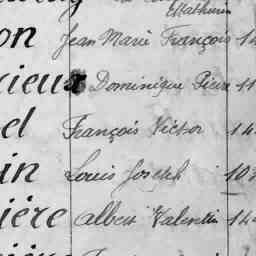 Mathurin
on Jean Marie François 14
cieux Dominique Pierre 11
el François Victor 14
in Louis Joseph 103
ière Albert Valentin 14